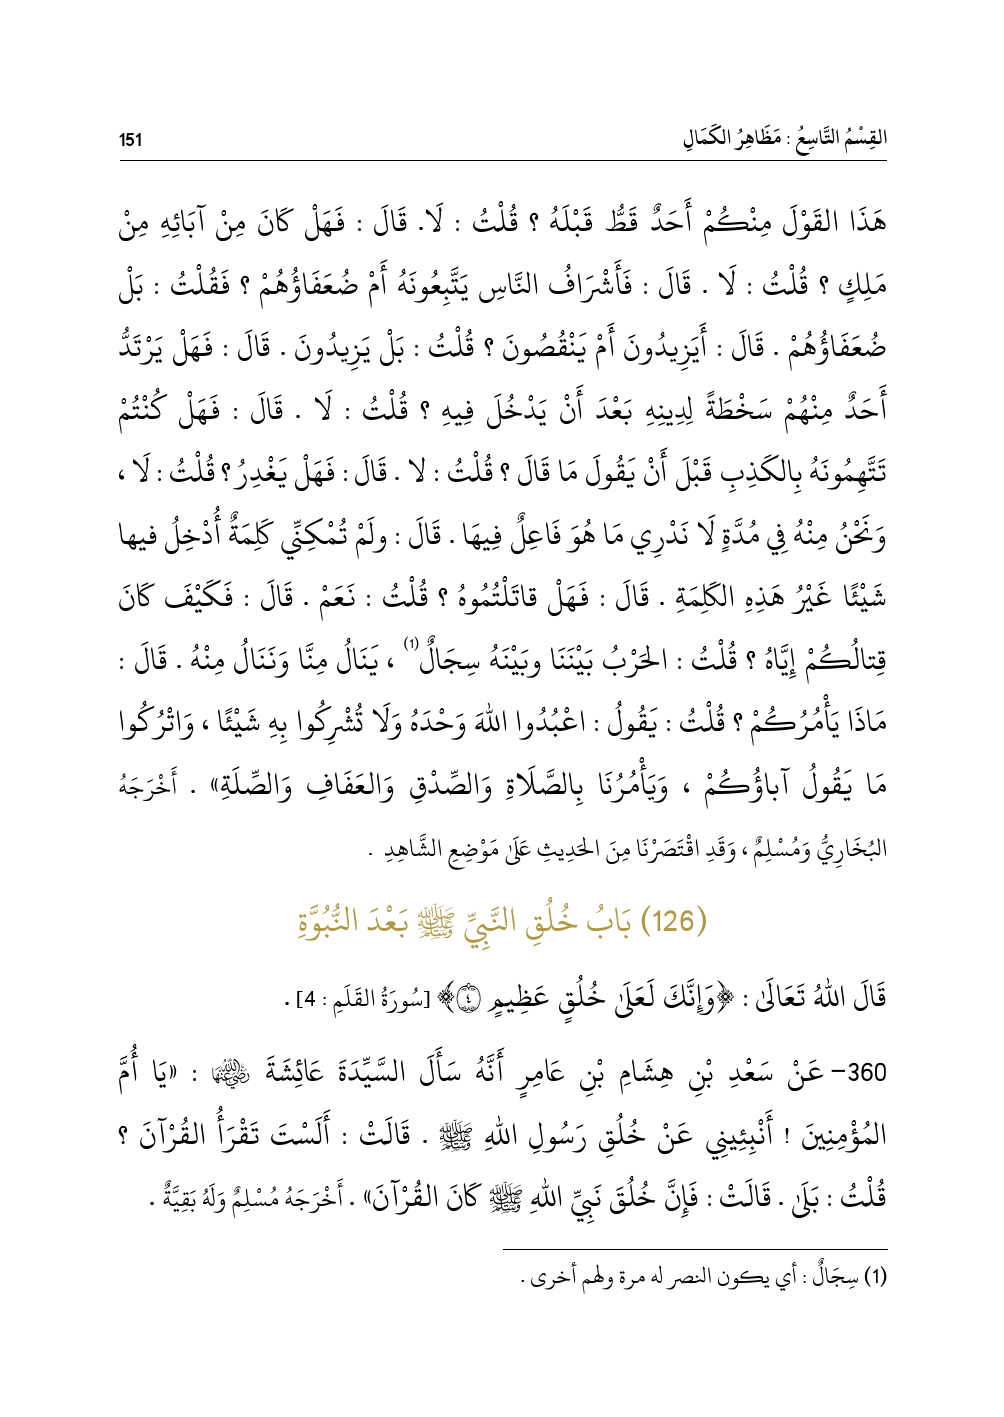 القِسْمُ التَّاسِعُ : مَظَاهِرُ الكَمَالِ 151
هَذَا القَوْلَ مِنْكُمْ أَحَدٌ قَطُّ قَبْلَهُ ؟ قُلْتُ : لَا. قَالَ : فَهَلْ كَانَ مِنْ آبَائِهِ مِنْ
مَلِكٍ ؟ قُلْتُ : لَا . قَالَ : فَأَشْرَافُ النَّاسِ يَتَّبِعُونَهُ أَمْ ضُعَفَاؤُهُمْ ؟ فَقُلْتُ : بَلْ
ضُعَفَاؤُهُمْ . قَالَ : أَيَزِيدُونَ أَمْ يَنْقُصُونَ ؟ قُلْتُ : بَلْ يَزِيدُونَ . قَالَ : فَهَلْ يَرْتَدُّ
أَحَدٌ مِنْهُمْ سَخْطَةً لِدِينِهِ بَعْدَ أَنْ يَدْخُلَ فِيهِ ؟ قُلْتُ : لَا . قَالَ : فَهَلْ كُنْتُمْ
تَتَّهِمُونَهُ بِالكَذِبِ قَبْلَ أَنْ يَقُولَ مَا قَالَ ؟ قُلْتُ : لا . قَالَ : فَهَلْ يَغْدِرُ ؟ قُلْتُ : لَا ،
وَنَحْنُ مِنْهُ فِي مُدَّةٍ لَا نَدْرِي مَا هُوَ فَاعِلٌ فِيهَا . قَالَ : ولَمْ تُمْكِنِّي كَلِمَةٌ أُدْخِلُ فيها
شَيْئًا غَيْرُ هَذِهِ الكَلِمَةِ . قَالَ : فَهَلْ قاتَلْتُمُوهُ ؟ قُلْتُ : نَعَمْ . قَالَ : فَكَيْفَ كَانَ
قِتالُكُمْ إِيَّاهُ ؟ قُلْتُ : الحَرْبُ بَيْنَنَا وبَيْنَهُ سِجَالٌ(1) ، يَنَالُ مِنَّا وَنَنَالُ مِنْهُ . قَالَ :
مَاذَا يَأْمُرُكُمْ ؟ قُلْتُ : يَقُولُ : اعْبُدُوا اللهَ وَحْدَهُ وَلَا تُشْرِكُوا بِهِ شَيْئًا ، وَاتْرُكُوا
مَا يَقُولُ آباؤُكُمْ ، وَيَأْمُرُنَا بِالصَّلَاةِ وَالصِّدْقِ وَالعَفَافِ وَالصِّلَةِ» . أَخْرَجَهُ
البُخَارِيُّ وَمُسْلِمٌ ، وَقَدِ اقْتَصَرْنَا مِنَ الحَدِيثِ عَلَى مَوْضِعِ الشَّاهِدِ .
(126) بَابُ خُلُقِ النَّبِيِّ ﷺ بَعْدَ النُّبُوَّةِ
قَالَ اللهُ تَعَالَىٰ : ﴿وَإِنَّكَ لَعَلَىٰ خُلُقٍ عَظِيمٍ ٤﴾ [سُورَةُ القَلَمِ : 4] .
360- عَنْ سَعْدِ بْنِ هِشَامِ بْنِ عَامِرٍ أَنَّهُ سَأَلَ السَّيِّدَةَ عَائِشَةَ رضي الله عنها : «يَا أُمَّ
المُؤْمِنِينَ ! أَنْبِئِينِي عَنْ خُلُقِ رَسُولِ اللهِ ﷺ . قَالَتْ : أَلَسْتَ تَقْرَأُ القُرْآنَ ؟
قُلْتُ : بَلَىٰ . قَالَتْ : فَإِنَّ خُلُقَ نَبِيِّ اللهِ ﷺ كَانَ القُرْآنَ» . أَخْرَجَهُ مُسْلِمٌ وَلَهُ بَقِيَّةٌ .
(1) سِجَالٌ : أي يكون النصر له مرة ولهم أخرى .